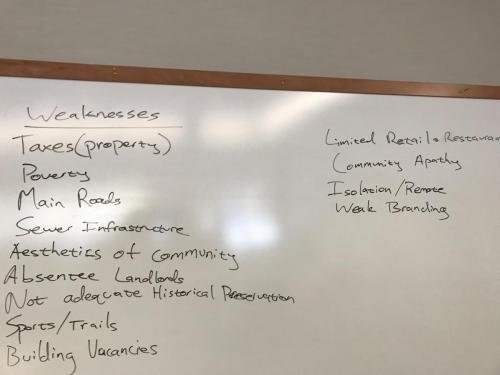 Weaknesses
Taxes (property)
Poverty
Main Roads
Sewer Infrastructure
Aesthetics of Community
Absentee Landlords
Not adequate Historical Preservation
Sports/Trails
Building Vacancies
Limited Retail &
Community Apathy
Isolation/Remote
Weak Branding